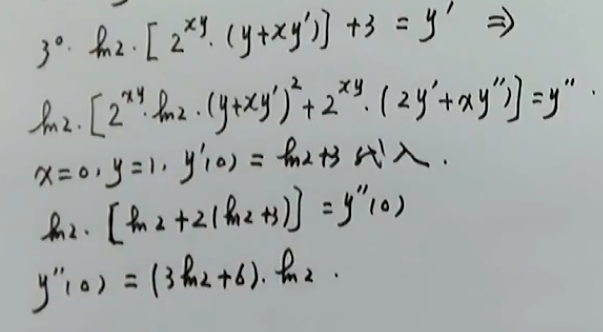 3°. ln2·[2^{xy}·(y+xy')]+3 = y' ⇒
ln2·[2^{xy}·ln2·(y+xy')²+2^{xy}·(2y'+xy'')]=y''.
x=0, y=1, y'(0)=ln2+3 代入.
ln2·[ln2+2(ln2+3)]=y''(0)
y''(0)=(3ln2+6)·ln2.